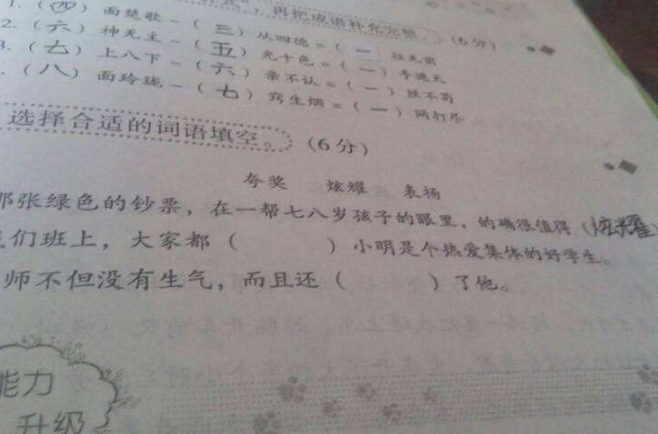 再把成语补充完整。(6分)
1.(四)面楚歌-(三)从四德=(一)丝无
2.(六)神无主-(五)光十色=(一)手遮天
3.(七)上八下-(六)亲不认=(一)丝不苟
(八)面玲珑-(七)窍生烟=(一)网打尽
选择合适的词语填空。(6分)
夸奖 炫耀 表扬
那张绿色的钞票,在一帮七八岁孩子的眼里,的确很值得(炫耀)
们班上,大家都( )小明是个热爱集体的好学生。
师不但没有生气,而且还( )了他。
能力
升级